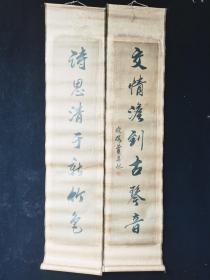 交情澹到古琴音
詩思清于新竹色